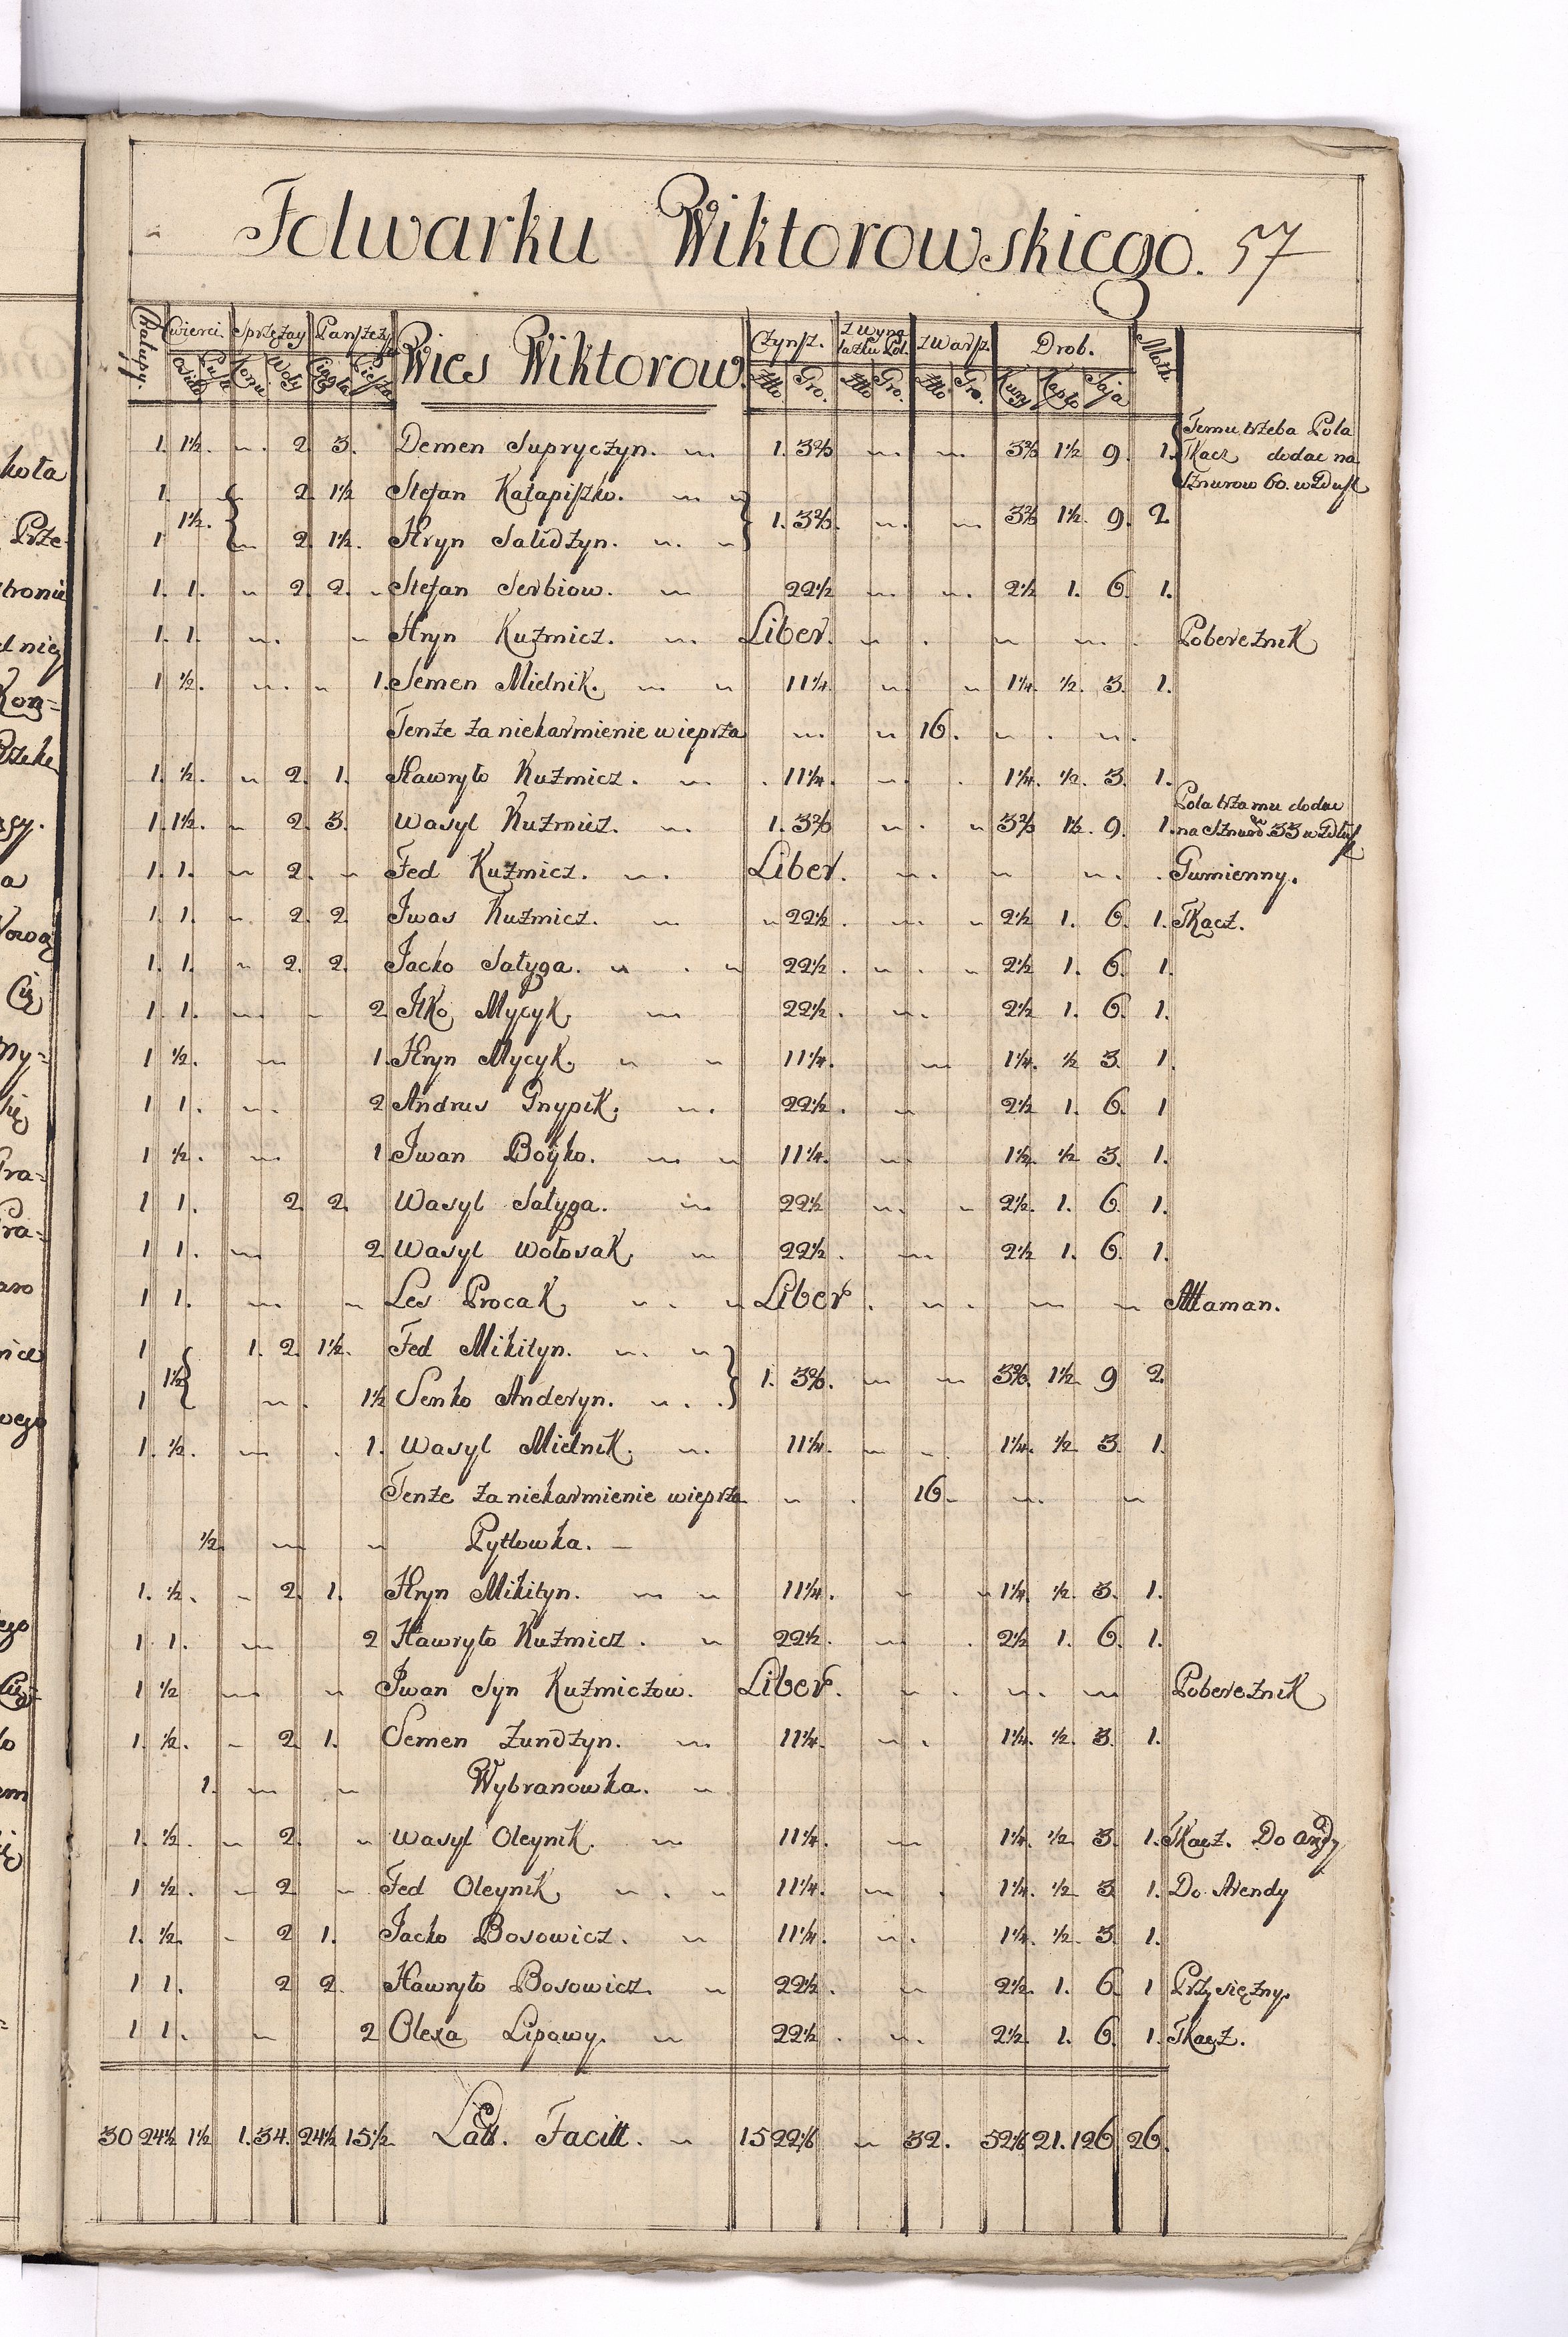 Folwarku Wiktorowskiego. 57
Chałupy. Cwierci Sprzęzay Panszcz. Wies Wiktorow. Czynsz. z Wyna lazku Pol. z Warsz. Drob. Motk
Osiad. Puste Konie Woły Ciągła Piesza Złło Gro. Złło Gro. Złło Gro. Kury Kapło Jaja
1. 1½. 2. 3. Demen Supryczyn. 1. 3¾ 3¾ 1½ 9. 1. Temu trzeba Pola
Tkacz dodac na
Sznurow 60. wzdusz
1. 2. 1½ Stefan Kałapiszko.
1½. 1. 3¾. 3¾ 1½. 9. 2
1 2. 1½. Hryn Salidzyn.
1. 1. 2. 2. Stefan Serbiow. 22½ 2½ 1. 6. 1.
1. 1. Hryn Kuźmicz. Liber. Pobereznik
1 ½. 1. Semen Mielnik. 11¼ 1¼. ½. 3. 1.
Tenze za niekarmienie wieprza 16.
1. ½. 2. 1. Hawryło Kuźmicz. 11¼. 1¼. ½. 3. 1.
1. 1½. 2. 3. Wasyl Kuźmicz. 1. 3¾ 3¾ 1½. 9. 1. Pola trza mu dodac
na Sznurow 33 wzdłusz
1. 1. 2. Fed Kuźmicz. Liber. Gumienny.
1. 1. 2. 2. Iwas Kuźmicz. 22½ 2½ 1. 6. 1. Tkacz.
1. 1. 2. 2. Jacko Sałyga. 22½. 2½ 1. 6. 1.
1. 1. 2 Ilko Mycyk. 22½. 2½ 1. 6. 1.
1 ½. 1. Hryn Mycyk. 11¼. 1¼. ½ 3. 1.
1 1. 2 Andrus Gnypik. 22½. 2½ 1. 6. 1
1 ½. 1 Iwan Boyko. 11¼. 1½. ½ 3. 1.
1 1. 2. 2. Wasyl Sałyga. 22½ 2½. 1. 6. 1.
1 1. 2. Wasyl Wołosak. 22½. 2½ 1. 6. 1.
1 1. Les Procak. Liber. Attaman.
1 1. 2. 1½. Fed Mikityn.
1½ 1. 3¾. 3¾. 1½. 9 2.
1 1½ Senko Anderyn.
1. ½. 1. Wasyl Mielnik. 11¼. 1¼. ½ 3. 1.
Tenze za niekarmienie wieprza 16.
½. Pytlowka.
1. ½. 2. 1. Hryn Mikityn. 11¼. 1¼. ½. 3. 1.
1 1. 2 Hawryło Kuźmicz. 22½. 2½ 1. 6. 1.
1 ½ Iwan Syn Kuźmiczow. Liber. Pobereznik
1. ½. 2. 1. Semen Zundzyn. 11¼. 1¼. ½. 3. 1.
1. Wybranowka.
1. ½. 2. Wasyl Oleynik. 11¼. 1¼. ½. 3. 1. Tkacz. Do
1 ½. 2 Fed Oleynik. 11¼. 1¼. ½ 3. 1. Do Arendy
1. ½. 2 1. Jacko Bosowicz. 11¼. 1¼. ½. 3. 1.
1 1. 2 2. Hawryło Bosowicz. 22½. 2½. 1. 6. 1 Przysięzny.
1 1. 2 Olexa Lipawy. 22½. 2½. 1. 6. 1. Tkacz.
30 24½ 1½ 1. 34. 24½ 15½ Latt. Facitt. 15 22⅚ 32. 52⅚ 21. 126 26.